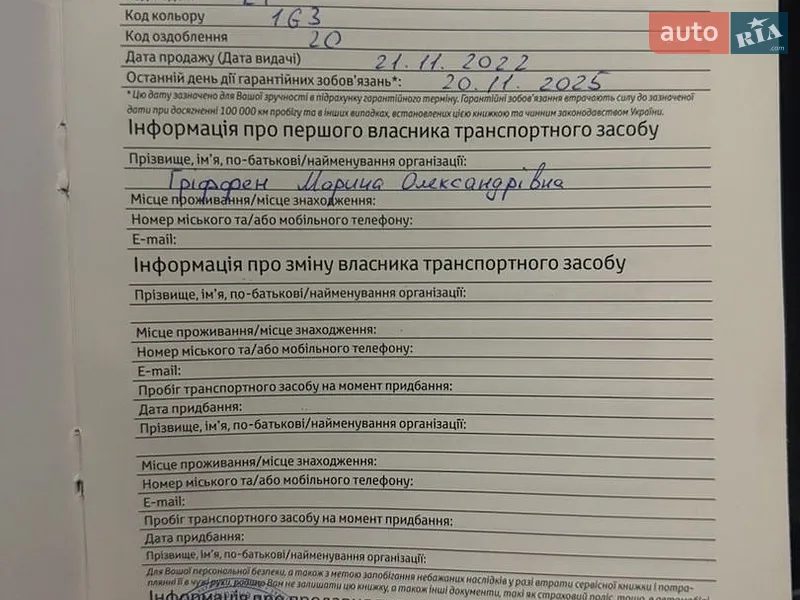 auto RIA .com
Код кольору 1G3
Код оздоблення 20
Дата продажу (Дата видачі) 21.11.2022
Останній день дії гарантійних зобов'язань*: 20.11.2025
* Цю дату зазначено для Вашої зручності в підрахунку гарантійного терміну. Гарантійні зобов'язання втрачають силу до зазначеної
дати при досягненні 100 000 км пробігу та в інших випадках, встановлених цією книжкою та чинним законодавством України.
Інформація про першого власника транспортного засобу
Прізвище, ім'я, по-батькові/найменування організації:
Гріффен Марина Олександрівна
Місце проживання/місце знаходження:
Номер міського та/або мобільного телефону:
E-mail:
Інформація про зміну власника транспортного засобу
Прізвище, ім'я, по-батькові/найменування організації:
Місце проживання/місце знаходження:
Номер міського та/або мобільного телефону:
E-mail:
Пробіг транспортного засобу на момент придбання:
Дата придбання:
Прізвище, ім'я, по-батькові/найменування організації:
Місце проживання/місце знаходження:
Номер міського та/або мобільного телефону:
E-mail:
Пробіг транспортного засобу на момент придбання:
Дата придбання:
Прізвище, ім'я, по-батькові/найменування організації:
Для Вашої персональної безпеки, а також з метою запобігання небажаних наслідків у разі втрати сервісної книжки і потра-
плянні її в чужі руки, радимо Вам не залишати цю книжку, а також інші документи, такі як страховий поліс, тощо, в автомобілі
Інформація про